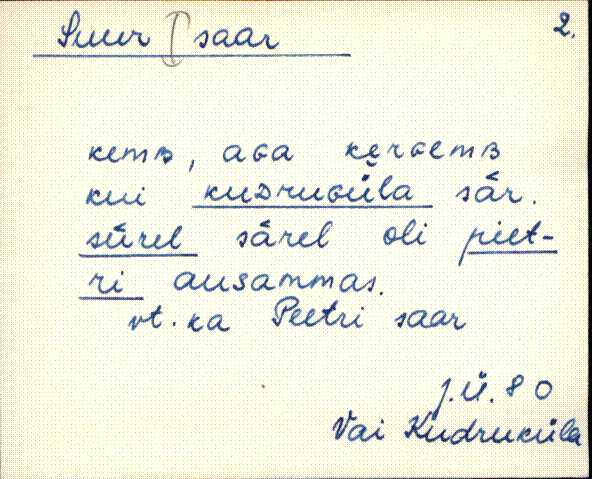 Suur saar 2.
kemʙ, aɢa kęrɢemʙ
kui kuᴅruɢüla sār.
sūrel sārel oli piet-
ri ausammas.
vt. ka Peetri saar
J.Ü. 80
Vai Kudruküla